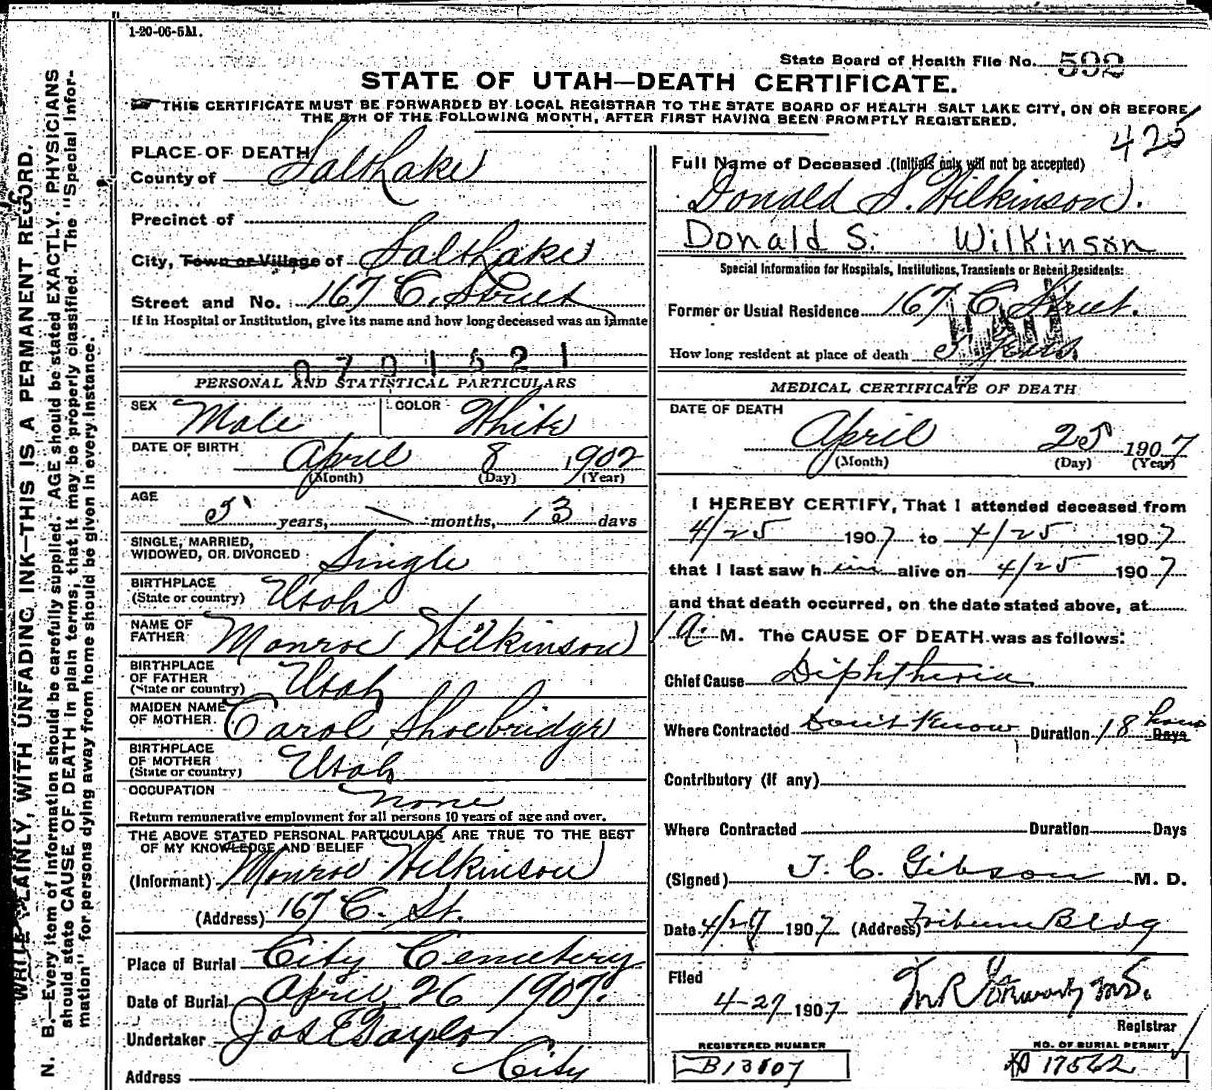 1-20-06-5M.
State Board of Health File No. 592
STATE OF UTAH—DEATH CERTIFICATE.
THIS CERTIFICATE MUST BE FORWARDED BY LOCAL REGISTRAR TO THE STATE BOARD OF HEALTH SALT LAKE CITY, ON OR BEFORE
THE 5TH OF THE FOLLOWING MONTH, AFTER FIRST HAVING BEEN PROMPTLY REGISTERED.
425
WRITE PLAINLY, WITH UNFADING INK—THIS IS A PERMANENT RECORD.
N. B.—Every item of information should be carefully supplied. AGE should be stated EXACTLY. PHYSICIANS
should state CAUSE OF DEATH in plain terms, that it may be properly classified. The "Special Infor-
mation" for persons dying away from home should be given in every instance.
PLACE OF DEATH
County of Salt Lake
Precinct of
City, Town or Village of Salt Lake
Street and No. 167 C. Street
If in Hospital or Institution, give its name and how long deceased was an inmate
0701521
PERSONAL AND STATISTICAL PARTICULARS
SEX Male COLOR White
DATE OF BIRTH April 8 1902
(Month) (Day) (Year)
AGE
5 years, \ months, 13 days
SINGLE, MARRIED,
WIDOWED, OR DIVORCED Single
BIRTHPLACE
(State or country) Utah
NAME OF
FATHER Monroe Wilkinson
BIRTHPLACE
OF FATHER
(State or country) Utah
MAIDEN NAME
OF MOTHER Carol Shoebridge
BIRTHPLACE
OF MOTHER
(State or country) Utah
OCCUPATION none
Return remunerative employment for all persons 10 years of age and over.
THE ABOVE STATED PERSONAL PARTICULARS ARE TRUE TO THE BEST
OF MY KNOWLEDGE AND BELIEF
(Informant) Monroe Wilkinson
(Address) 167 C. St.
Place of Burial City Cemetery
Date of Burial April 26 1907.
Undertaker Jos E Taylor
Address City
Full Name of Deceased (Initials only will not be accepted)
Donald S. Wilkinson.
Donald S. Wilkinson
Special Information for Hospitals, Institutions, Transients or Recent Residents:
Former or Usual Residence 167 C Street.
How long resident at place of death 5 Years
MEDICAL CERTIFICATE OF DEATH
DATE OF DEATH
April 25 1907
(Month) (Day) (Year)
I HEREBY CERTIFY, That I attended deceased from
4/25 1907 to 4/25 1907
that I last saw him alive on 4/25 1907
and that death occurred, on the date stated above, at
1 a. M. The CAUSE OF DEATH was as follows:
Chief Cause Diphtheria
Where Contracted Don't Know Duration 18 hours Days
Contributory (If any)
Where Contracted Duration Days
(Signed) J. C. Gibson M. D.
Date 4/27 1907 (Address) Tribune Bldg
Filed
4-27-1907
Registrar
REGISTERED NUMBER
B13107
NO. OF BURIAL PERMIT
17562